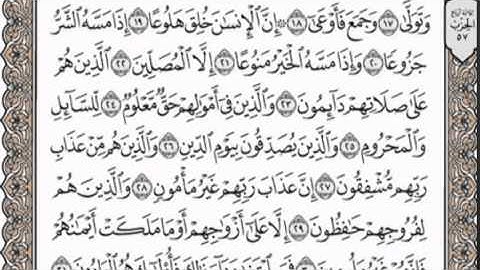 وَتَوَلَّىٰ ١٧ وَجَمَعَ فَأَوْعَىٰٓ ١٨ ۞ إِنَّ ٱلْإِنسَٰنَ خُلِقَ هَلُوعًا ١٩ إِذَا مَسَّهُ ٱلشَّرُّ
جَزُوعًا ٢٠ وَإِذَا مَسَّهُ ٱلْخَيْرُ مَنُوعًا ٢١ إِلَّا ٱلْمُصَلِّينَ ٢٢ ٱلَّذِينَ هُمْ
عَلَىٰ صَلَاتِهِمْ دَآئِمُونَ ٢٣ وَٱلَّذِينَ فِىٓ أَمْوَٰلِهِمْ حَقٌّ مَّعْلُومٌ ٢٤ لِّلسَّآئِلِ
وَٱلْمَحْرُومِ ٢٥ وَٱلَّذِينَ يُصَدِّقُونَ بِيَوْمِ ٱلدِّينِ ٢٦ وَٱلَّذِينَ هُم مِّنْ عَذَابِ
رَبِّهِم مُّشْفِقُونَ ٢٧ إِنَّ عَذَابَ رَبِّهِمْ غَيْرُ مَأْمُونٍ ٢٨ وَٱلَّذِينَ هُمْ
لِفُرُوجِهِمْ حَٰفِظُونَ ٢٩ إِلَّا عَلَىٰٓ أَزْوَٰجِهِمْ أَوْ مَا مَلَكَتْ أَيْمَٰنُهُمْ
الحِزْب
٥٧